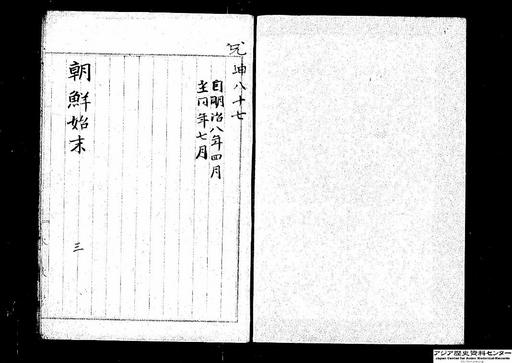 坤八十七
自明治八年四月
至同年七月
朝鮮始末
三
アジア歴史資料センター
Japan Center for Asian Historical Records